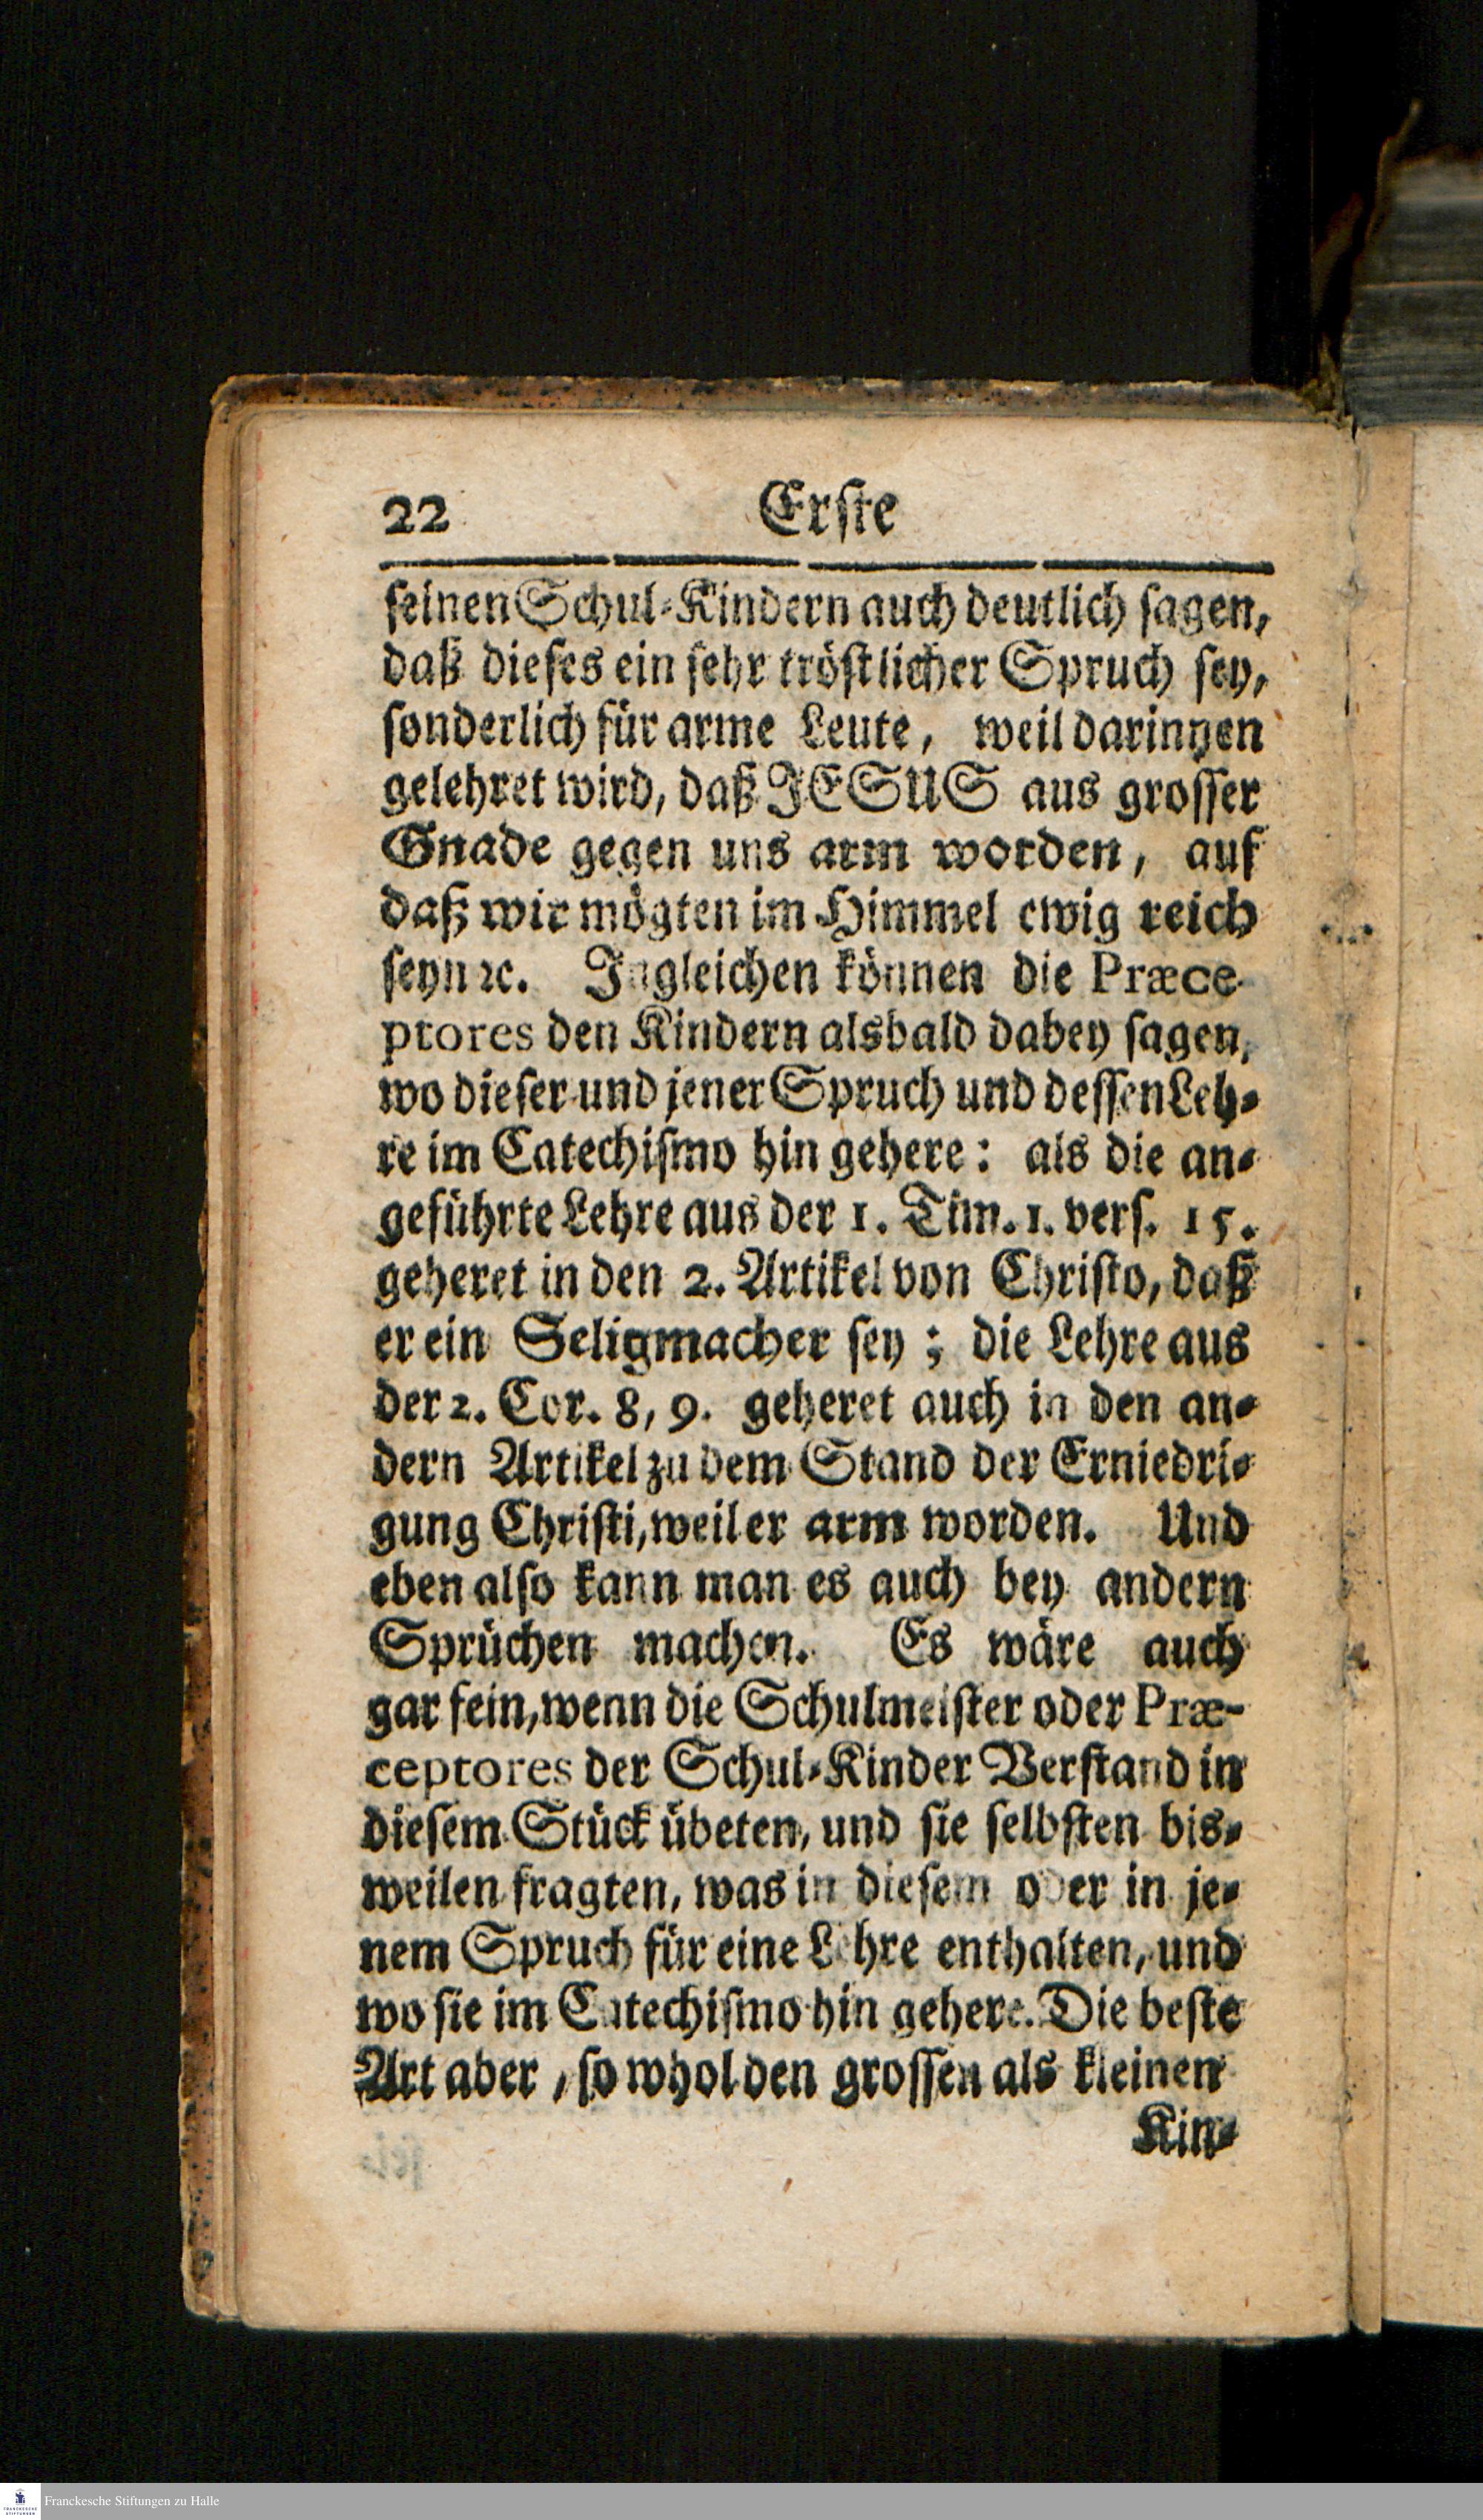 22 Erste
seinen Schul-Kindern auch deutlich sagen,
daß dieses ein sehr tröstlicher Spruch sey,
sonderlich für arme Leute, weil darinnen
gelehret wird, daß JESUS aus grosser
Gnade gegen uns arm worden, auf
daß wir mögten im Himmel ewig reich
seyn ꝛc. Ingleichen können die Præce-
ptores den Kindern alsbald dabey sagen,
wo dieser und jener Spruch und dessen Leh-
re im Catechismo hin gehere: als die an-
geführte Lehre aus der 1. Tim. 1. vers. 15.
geheret in den 2. Artikel von Christo, daß
er ein Seligmacher sey; die Lehre aus
der 2. Cor. 8, 9. geheret auch in den an-
dern Artikel zu dem Stand der Erniedri-
gung Christi, weil er arm worden. Und
eben also kann man es auch bey andern
Sprüchen machen. Es wäre auch
gar fein, wenn die Schulmeister oder Præ-
ceptores der Schul-Kinder Verstand in
diesem Stück übeten, und sie selbsten bis-
weilen fragten, was in diesem oder in je-
nem Spruch für eine Lehre enthalten, und
wo sie im Catechismo hin gehere. Die beste
Art aber, so whol den grossen als kleinen
Kin-
Franckesche Stiftungen zu Halle